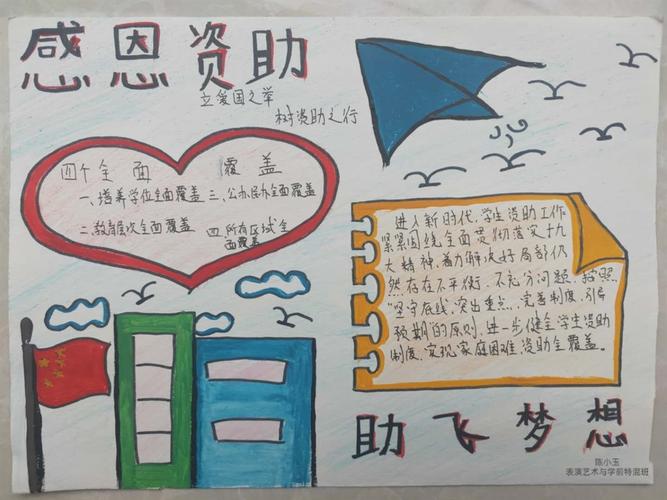 感恩资助
立爱国之举
树资助之行
四个全面覆盖
一、培养学位全面覆盖 三、公办民办全面覆盖
二、教育层次全面覆盖 四、所有区域全
面覆盖
进入新时代,学生资助工作
紧紧围绕全面贯彻落实十九
大精神,着力解决好局部仍
然存在不平衡、不充分问题,按照
坚守底线,突出重点,完善制度,引导
预期的原则,进一步健全学生资助
制度,实现家庭困难资助全覆盖。
助飞梦想
陈小玉
表演艺术与学前特混班